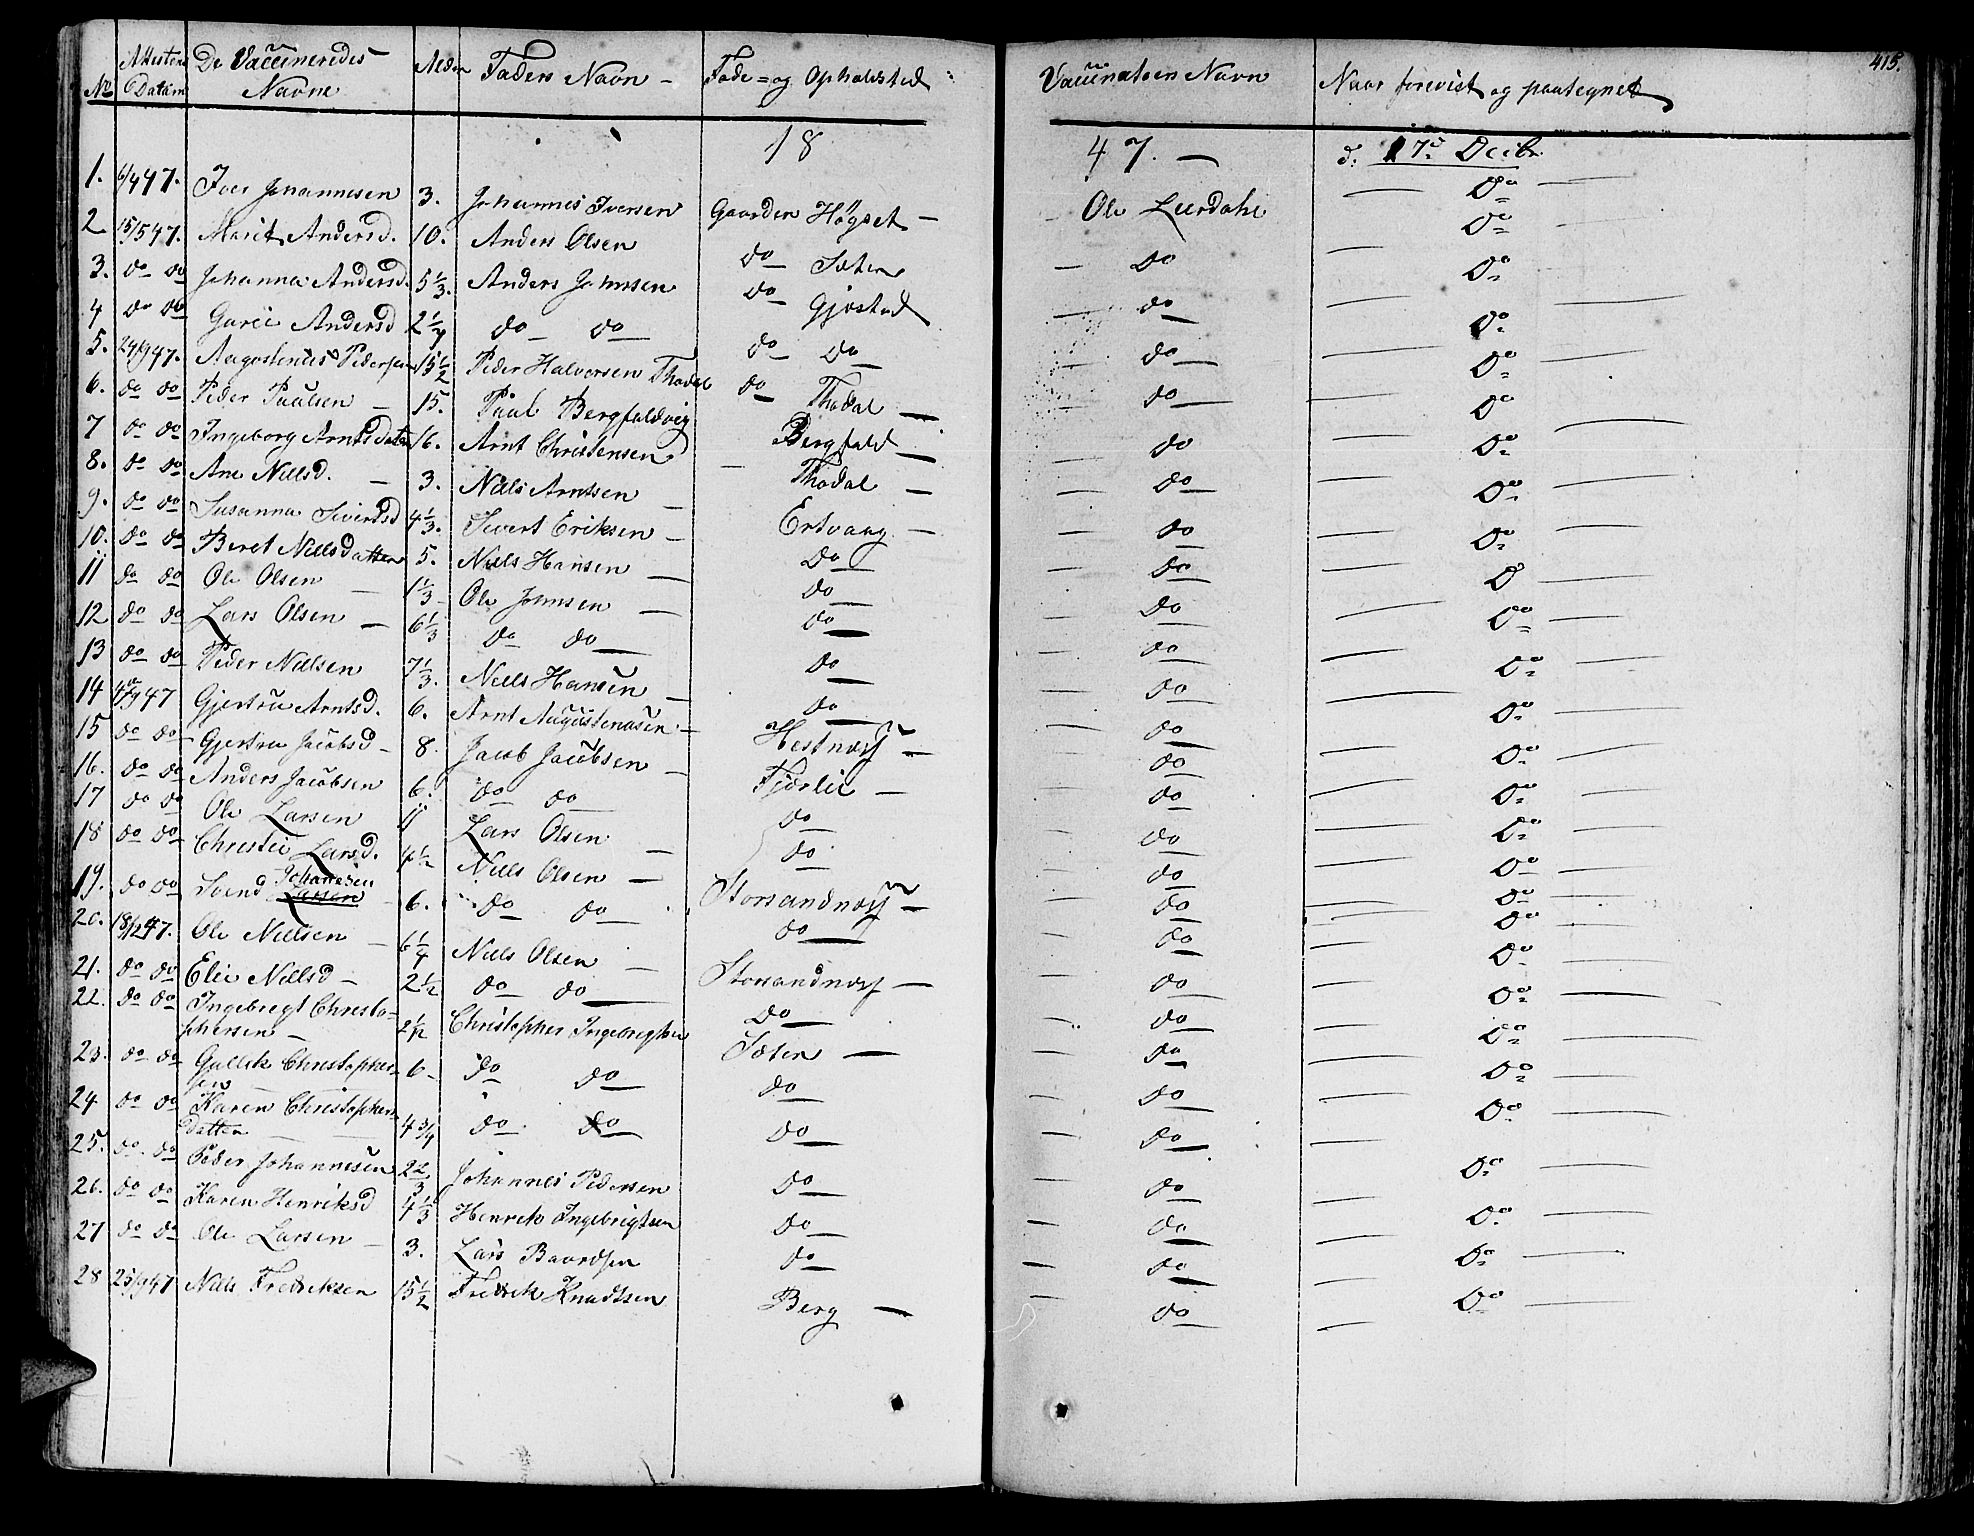 415.
No Attestens Datum De Vaccineredes Navne Alder Faders Navn - Føde= og Opholdsted Vaccinatoren Navn Naar forevist og paategnet
18 47. - d: 17d Decbr
1. 6/4 47. Iver Johannesen 3. Johannes Iversen Gaarden Høgset - Ole Leerdahl — Do —
2 15/5 47. Marit Andersd. 10. Anders Olsen do Sæter — do — Do —
3. do do Johanna Andersd. 5 1/3. Anders Johnsen do Gjøstad — do — Do
4 do do Gurie Andersd 2 1/4 do do do do — do — Do
5. 24/9 47. Augustinus Pedersen 15 1/2 Peder Halvorsen Thodal do Thodal — do — Do
6. do do Peder Paulsen - 15. Paul Bergfaldvig Bergfald — do — Do
7 do do Ingeborg Arntsdatter 16. Arnt Christensen - Thodal — do — Do
8. do do Ane Nilsd. - 3. Niels Arntsen - Ertvaag - do — Do
9. do do Susanna Sivertsd 4 1/3. Sivert Eriksen - do — do — Do
10. do do Beret Nielsdatter 5. Niels Hansen - do — do — Do
11 do do Ole Olsen - 1 1/3 Ole Johnsen - do — do — Do
12 do do Lars Olsen - 6 1/3 do do do — do — Do
13 do do Peder Nielsen 7 1/3. Niels Hansen - do — do — Do
14 4/9 47 Gjertru Arntsd. 6. Arnt Augustinusen - Hestnæs - do — Do
15 do do Gjertru Jacobsd - 8. Jacob Jacobsen - Fjærlie - do — Do
16. do do Anders Jacobsen 6. do do do — do — Do
17 do do Ole Larsen 11 Lars Olsen - do — do — Do
18 do do Christie Larsd. 1/2 Niels Olsen - Storsandnæs - do — Do
19. do do Svend Johanesen Larsen 6. do do do — do — Do
20. 18/12 47. Ole Nielsen - 6 1/4 Niels Olsen - Storsandnæs - do — Do
21. do do Elie Nielsd - 2 1/2 do do do — do — Do
22. do do Ingebregt Christo-
phersen - 2 1/2 Christopher Ingebrigtsen Sæter - do — Do
23. do do Gullik Christopher-
sen 6- do do do — do — Do
24 do do Karen Christophers-
datter 4 3/4 do do do — do — Do
25. do do Peder Johannesen 2 2/3 Johannes Pedersen do — do — Do
26. do do Karen Henriksd 4 1/3 Henrik Ingebrigtsen do — do — Do
27 do do Ole Larsen - 3. Lars Baardsen do — do — Do
28 25/9 47 Niels Fredriksen 15 1/2 Fredrik Knudtsen Berg — do — Do